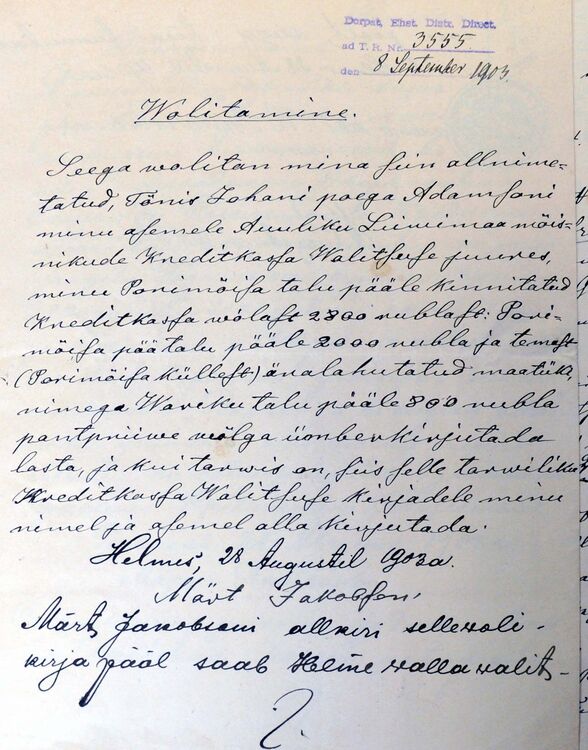 Dorpat, Ehst. Distr. Direct.
ad T. R. Nr. 3555.
den 8 September 1903.
Wolitamine.
Seega wolitan mina siin allnime-
tatud, Tõnis Johani poega Adamsoni
minu asemele Auuliku Liiwimaa mõis-
nikude Kreditkassa Walitsuse juures,
minu Porimõisa talu pääle kinnitatud
Kreditkassa wõlast 2800 rublast: Pori-
mõisa päätalu pääle 2000 rubla ja temast
(Porimõisa küllest) äralahutatud maatüki,
nimega Wariku talu pääle 800 rubla
pantpriiwe wõlga ümberkirjutada
lasta, ja kui tarwis on, siis selle tarwiliku
Kreditkassa Walitsuse kirjadele minu
nimel ja asemel alla kirjutada.
Helmes, 28 Augustil 1903a.
Märt Jakobson
Märt Jakobsoni allkiri sellewoli-
kirja pääl saab Helme walla walits-